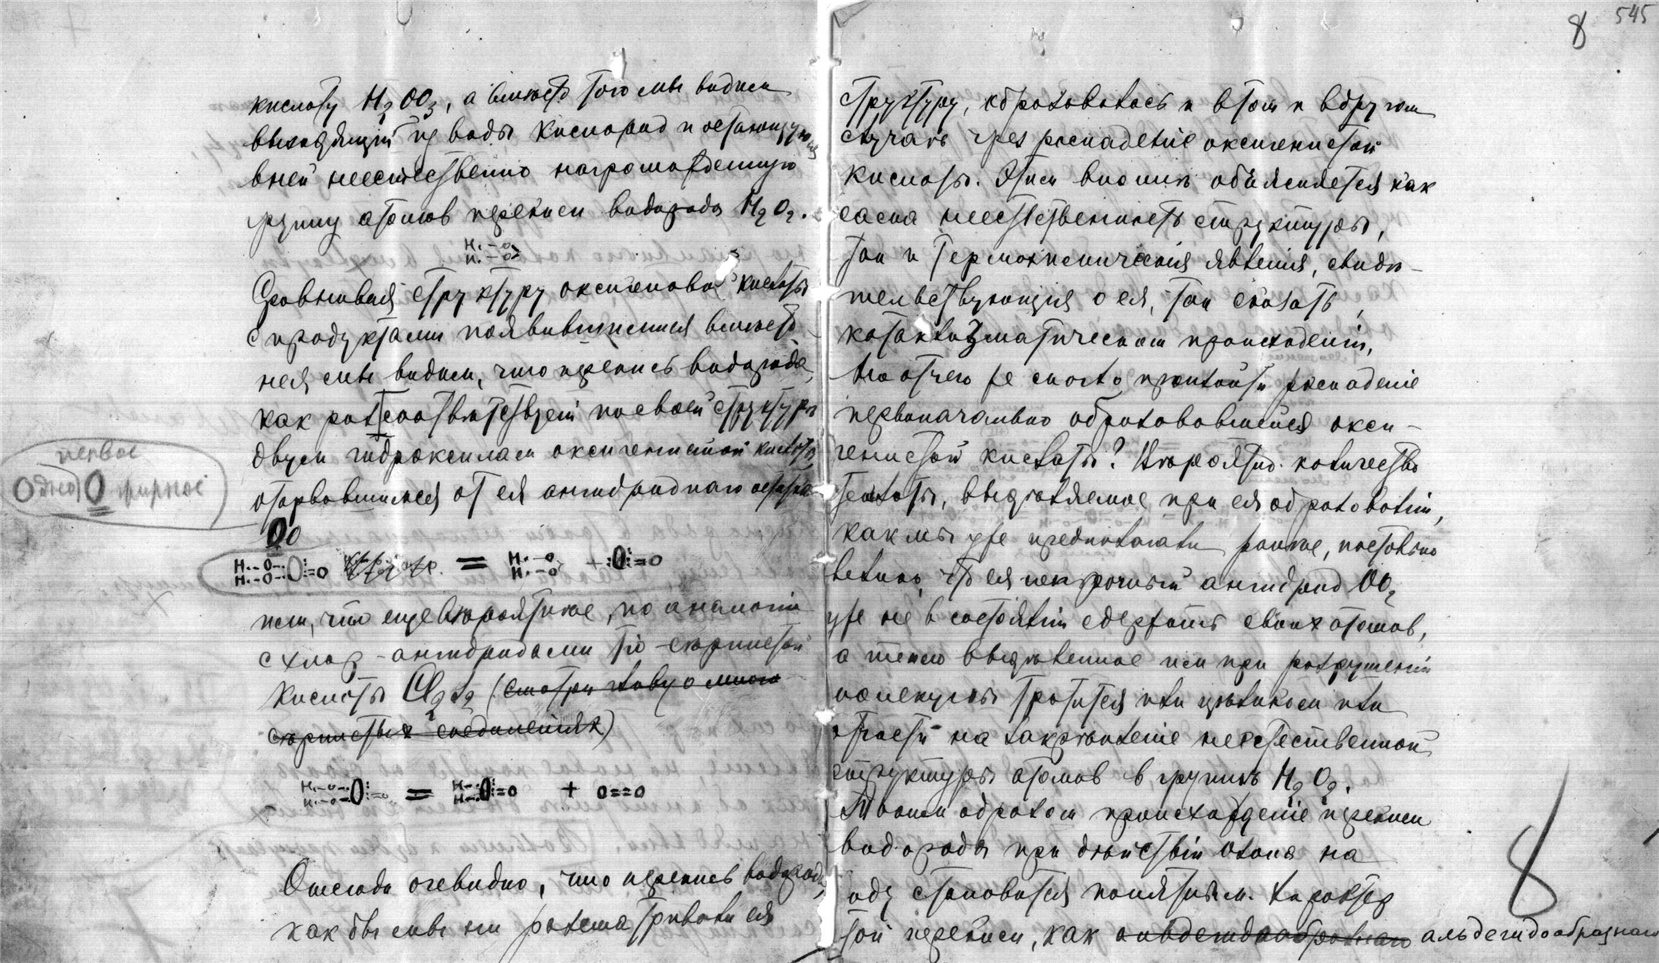 8 545
кислоту H2OO3, а вместо того мы видим
выходящий из воды кислород и остающуюся
в ней неестественно нагроможденную
группу атомов перекиси водорода H2O2.
H·–O
H·–O
Сравнивая структуру оксигеновой кислоты
с продуктами появившимися вместо
нея мы видим, что перекись водорода,
как раз соответствует по своей структуре
двум гидроксилам оксигенистой кислоты
оторвавшимся от ея ангидриднаго остатка
OO
первое
Одно O жирное
H·–O
H·–O O=O = H·–O
H·–O + O=O
или, что еще вероятнее, по аналогии
с хлор-ангидридами
кислоты Cl2 (смотри главу о
соединениях)
H·–O
H·–O O=O = O=O + O==O
Отсюда очевидно, что перекись водорода,
как бы мы ни рассматривали ея
структуру, образовалась и в том и в другом
случае чрез распадение оксигенистой
кислоты. Этим вполне объясняется как
сама неестественность структуры,
так и термохимическия явления, свиде-
тельствующия о ея, так сказать,
катаклизматическом происхождении,
Но отчего же могло произойти распадение
первоначально образовавшейся окси-
генистой кислоты? Вероятно количество
теплоты, выделяемое при ея образовании,
как мы уже предполагали раньше, настолько
велико, что ея непрочный ангидрид OO2
уже не в состоянии сдержать своих атомов,
а тепло выделенное им при разрушении
молекулы тратится или целиком или
отчасти на заключение неестественной
структуры атомов в группе H2O2.
Таким образом происхождение перекиси
водорода при действии озона на
воду становится понятным. Характер
той перекиси, как альдегидообразнаго
8